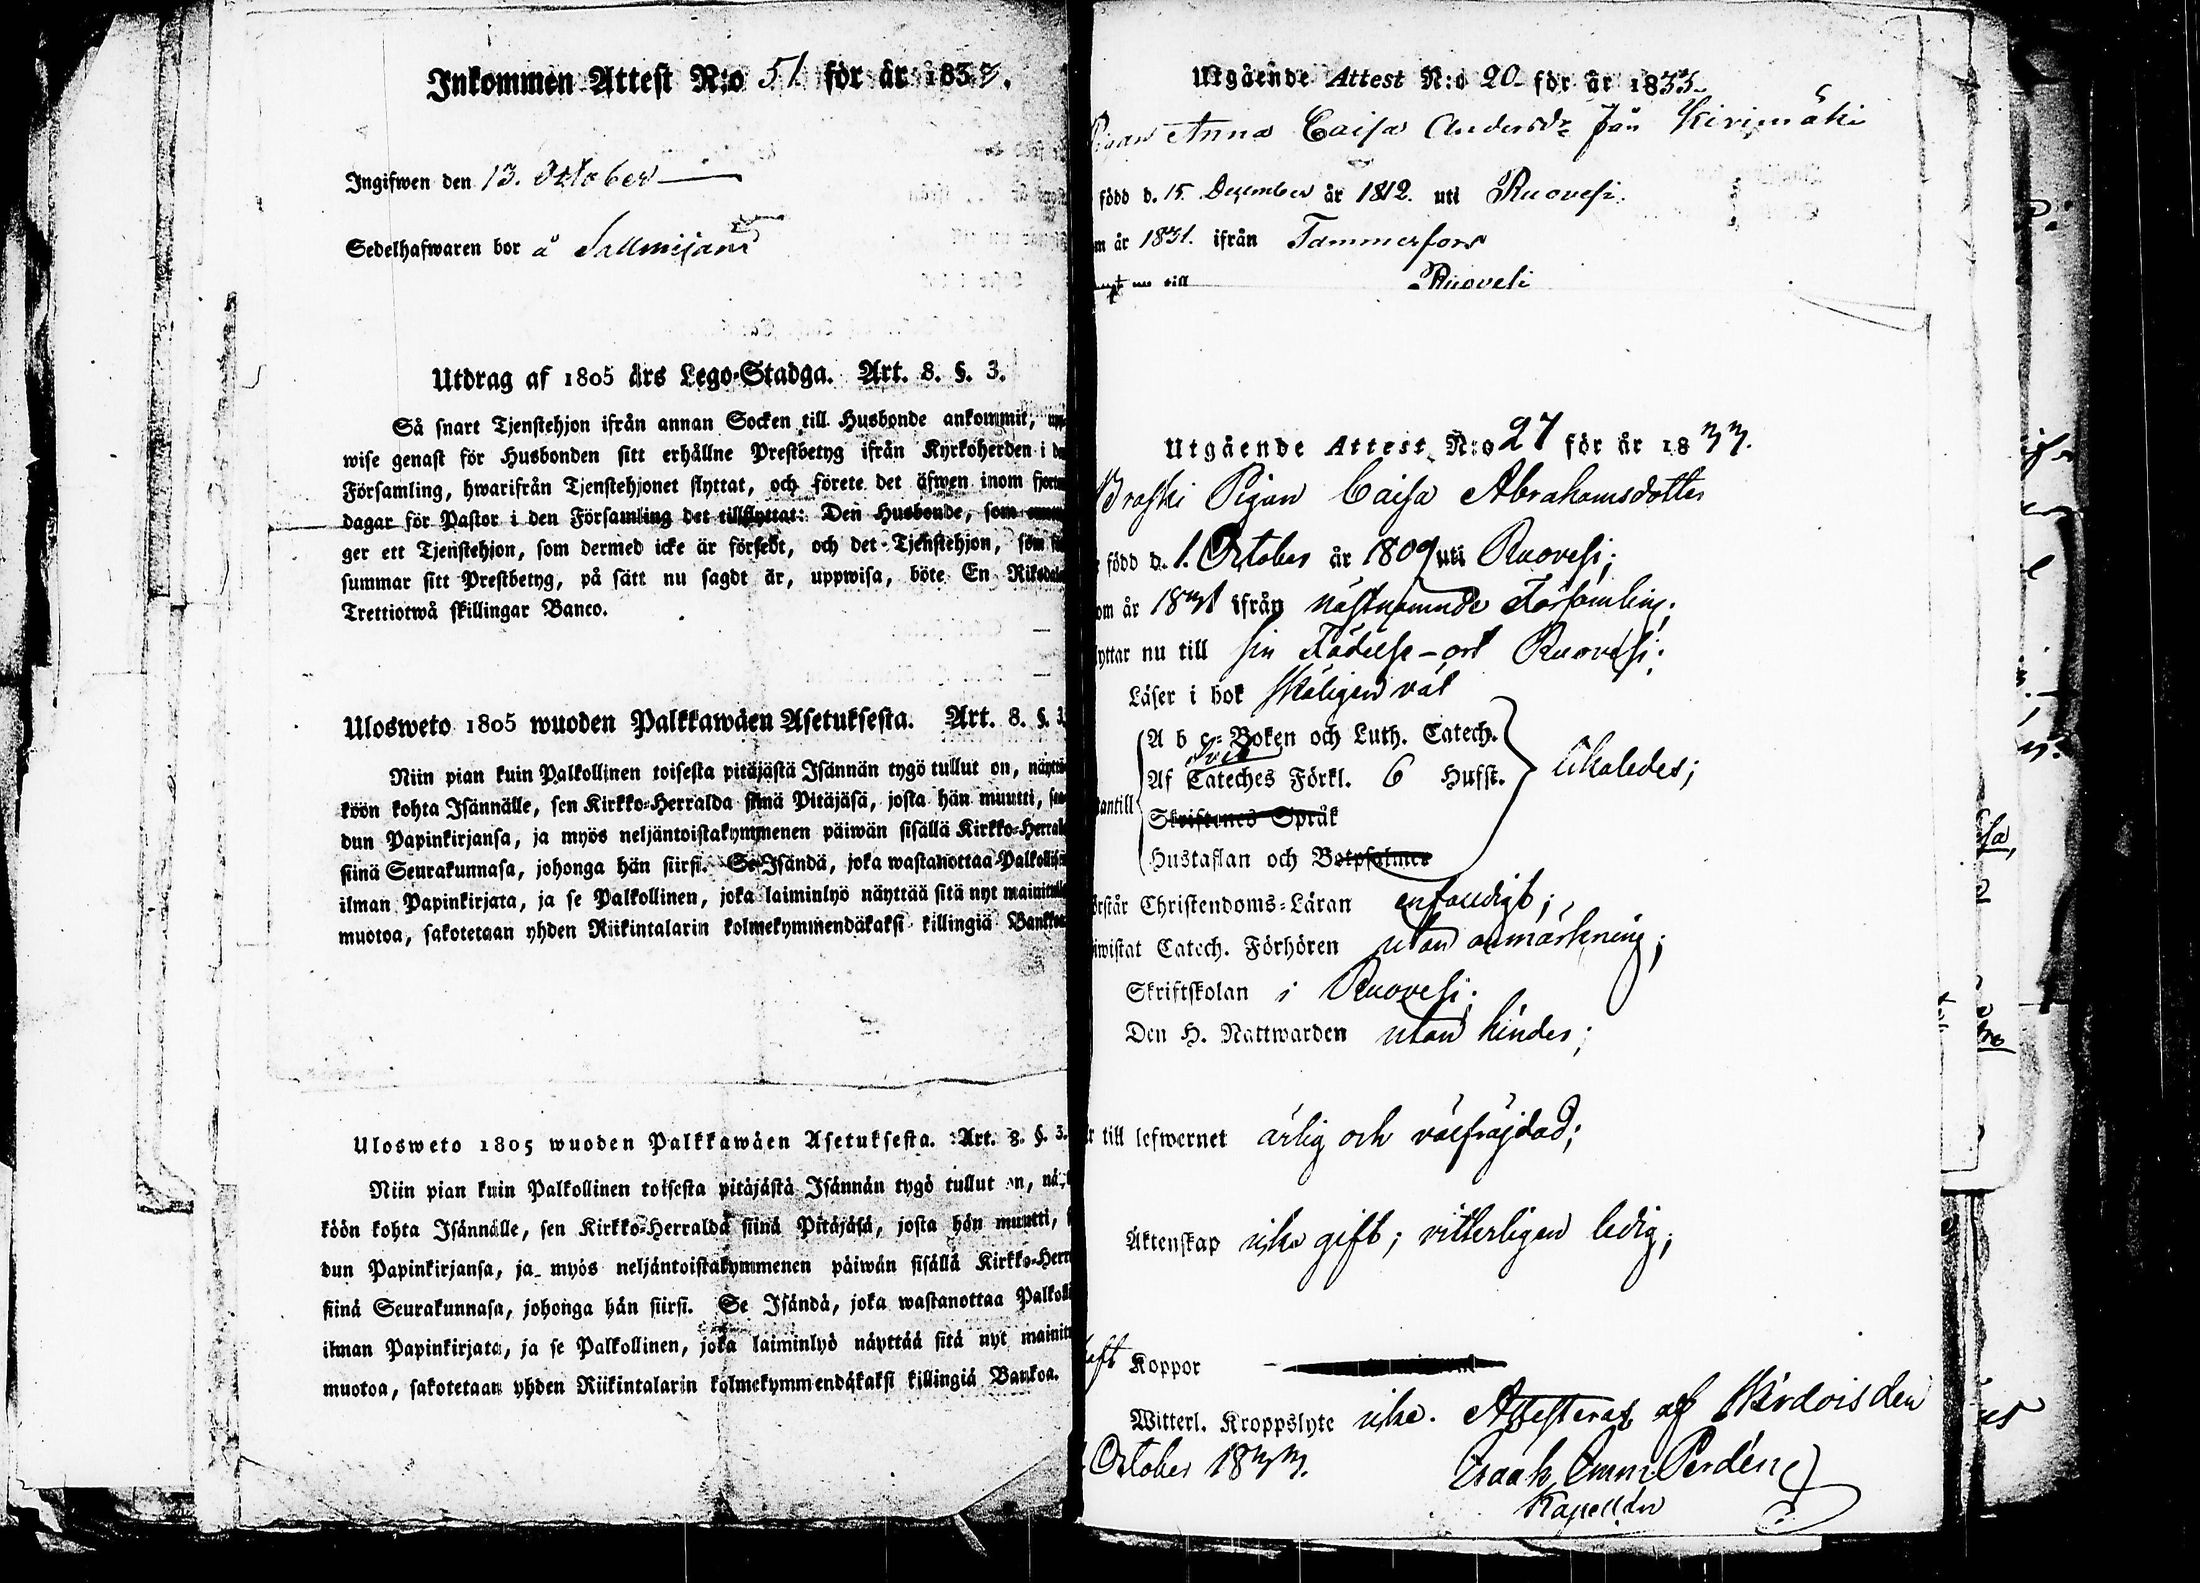 Inkommen Attest N:o 51 för år 1833.
Ingifwen den 13. October
Sedelhafwaren bor å
Utdrag af 1805 års Lego-Stadga. Art. 8. §. 3.
Så snart Tjenstehjon ifrån annan Socken till Husbonde ankommit,
wise genast för Husbonden sitt erhållne Prestbetyg ifrån Kyrkoherden i
Församling, hwarifrån Tjenstehjonet flyttat, och förete det äfwen inom
dagar för Pastor i den Församling det tillflyttat: Den Husbonde, som
ger ett Tjenstehjon, som dermed icke är försedt, och det Tjenstehjon,
summar sitt Prestbetyg, på sätt nu sagdt är, uppwisa, böte En
Trettiotwå skillingar Banco.
Ulosweto 1805 wuoden Palkkawäen Asetuksesta. Art. 8. §. 3.
Niin pian kuin Palkollinen toisesta pitäjästä Isännän tygö tullut on,
köön kohta Isännälle, sen Kirkko-Herralda siinä Pitäjäsä, josta hän muutti,
dun Papinkirjansa, ja myös neljäntoistakymmenen päiwän sisällä Kirkko-
siinä Seurakunnasa, johonga hän siirsi. Se Isändä, joka wastanottaa
ilman Papinkirjata, ja se Palkollinen, joka laiminlyö näyttää sitä nyt
muotoa, sakotetaan yhden Riikintalarin kolmekymmendäkaksi killingiä
Ulosweto 1805 wuoden Palkkawäen Asetuksesta. Art. 8. §. 3.
Niin pian kuin Palkollinen toisesta pitäjästä Isännän tygö tullut on,
köön kohta Isännälle, sen Kirkko-Herralda siinä Pitäjäsä, josta hän muutti,
dun Papinkirjansa, ja myös neljäntoistakymmenen päiwän sisällä Kirkko-Herr
siinä Seurakunnasa, johonga hän siirsi. Se Isändä, joka wastanottaa
ilman Papinkirjata, ja se Palkollinen, joka laiminlyö näyttää sitä nyt
muotoa, sakotetaan yhden Riikintalarin kolmekymmendäkaksi killingiä Bankoa.
Utgående Attest N:o 20 för år 1833.
Anna Caisa Andersdr
född d. 15 December år 1812. uti Ruovesi.
m år 1831. ifrån Tammerfors
nu till Ruovesi
Utgående Attest N:o 27 för år 1833.
Pigan Caisa Abrahamsdotter
född d. 1. October år 1809 uti Ruovesi;
om år 1831 ifrån nästnämnde Församling;
yttar nu till sin Födelse-ort Ruovesi;
Läser i bok skäligen väl
A b c-Boken och Luth. Catech.
Af Cateches Förkl. 6 Hufst. likaledes;
antill
Skriftenes Språk
Hustaflan och Botpsalmer
örstår Christendoms-Läran enfaldigt;
iwistat Catech. Förhören utan anmärkning;
Skriftskolan i Ruovesi;
Den H. Nattwarden utan hinder;
r till lefwernet ärlig och välfräjdad;
Äktenskap icke gift; vitterligen ledig;
aft Koppor
Witterl. Kroppslyte icke. Attesteras af Wirdois den
October 1833. Isaak Eman. Perdén
Kapellan